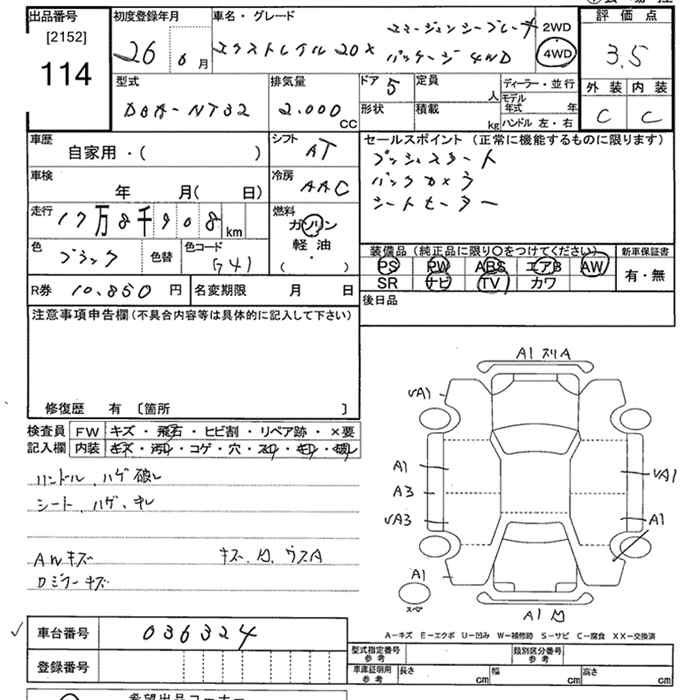 出品番号
[2152]
114
初度登録年月
26 6月
車名・グレード
エマージェンシーブレーキ
エクストレイル 20X パッケージ 4WD
2WD
4WD
評価点
3.5
外装 内装
C C
型式
DBA-NT32
排気量
2.000
CC
ドア
5
定員
人
形状
積載
kg
ディーラー・並行
モデル年式 年
ハンドル 左・右
車歴
自家用・( )
シフト
AT
車検
年 月( 日)
冷房
AAC
走行
17万8千908 km
燃料
ガソリン
軽油
( ・ )
色
ブラック
色替
色コード
G41
R券 10.850 円
名変期限 月 日
セールスポイント(正常に機能するものに限ります)
プッシュスタート
バックカメラ
シートヒーター
装備品(純正品に限り〇をつけてください)
PS PW ABS エアB AW
SR ナビ TV カワ
新車保証書
有・無
後日品
注意事項申告欄(不具合内容等は具体的に記入して下さい)
修復歴 有 〔箇所 〕
検査員記入欄
FW キズ・飛石・ヒビ割・リペア跡・×要
内装 キズ・汚れ・コゲ・穴・スレ・キレ・破れ
ハンドル、ハゲ 破レ
シート、ハゲ、キレ
AWキズ
キズ、凹、ウスA
ロジフーキズ
A1 スリA
VA1
A1
A3
VA3
A1
VA1
A1
A1 凹
スペア
A-キズ E-エクボ U-凹み W-補修跡 S-サビ C-腐食 XX-交換済
車台番号
036324
登録番号
型式指定番号
参考
類別区分番号
参考
車庫証明用
参考
長さ cm
幅 cm
高さ cm
希望出品コーナー